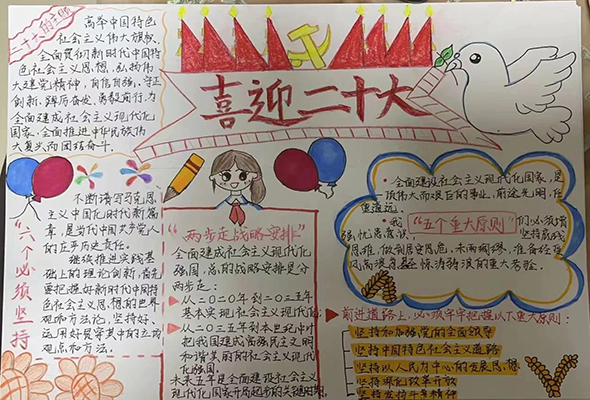 二十大的主题
高举中国特色
社会主义伟大旗帜,
全面贯彻新时代中国特
色社会主义思想,弘扬伟
大建党精神,自信自强、守正
创新,踔厉奋发、勇毅前行,为
全面建成社会主义现代化
国家、全面推进中华民族伟
大复兴而团结奋斗。
喜迎二十大
“六个必须坚持”
不断谱写马克思
主义中国化时代新篇
章,是当代中国共产党人
的庄严历史责任。
继续推进实践基
础上的理论创新,首先
要把握好新时代中国特
色社会主义思想的世界
观和方法论,坚持好、
运用好贯穿其中的立场
观点和方法。
“两步走战略安排”
全面建成社会主义现代化
强国,总的战略安排是分
两步走:
从二〇二〇年到二〇三五年
基本实现社会主义现代化;
从二〇三五年到本世纪中叶
把我国建成富强民主文明
和谐美丽的社会主义现代
化强国。
未来五年是全面建设社会主义
现代化国家开局起步的关键时期。
全面建设社会主义现代化国家,是
一项伟大而艰巨的事业,前途光明,任
重道远。
“五个重大原则”
我们必须增
强忧患意识,坚持底线
思维,做到居安思危、未雨绸缪,准备经受
风高浪急甚至惊涛骇浪的重大考验。
前进道路上,必须牢牢把握以下重大原则:
坚持和加强党的全面领导
坚持中国特色社会主义道路
坚持以人民为中心的发展思想
坚持深化改革开放
坚持发扬斗争精神